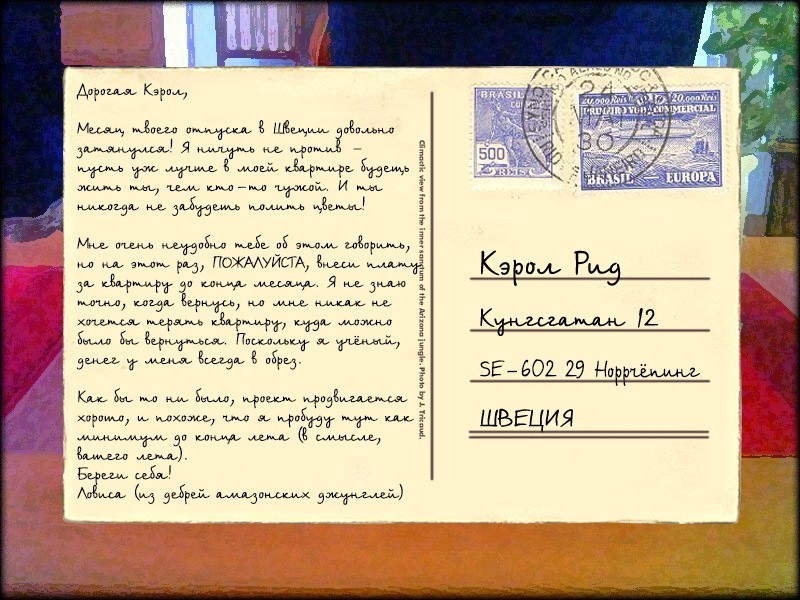 Дорогая Кэрол,
Месяц твоего отпуска в Швеции довольно
затянулся! Я ничуть не против –
пусть уж лучше в моей квартире будешь
жить ты, чем кто-то чужой. И ты
никогда не забудешь полить цветы!
Мне очень неудобно тебе об этом говорить,
но на этот раз, ПОЖАЛУЙСТА, внеси плату
за квартиру до конца месяца. Я не знаю
точно, когда вернусь, но мне никак не
хочется терять квартиру, куда можно
было бы вернуться. Поскольку я учёный,
денег у меня всегда в обрез.
Как бы то ни было, проект продвигается
хорошо, и похоже, что я пробуду тут как
минимум до конца лета (в смысле,
вашего лета).
Береги себя!
Ловиса (из дебрей амазонских джунглей)
Climactic view from the inner sanctum of the Arizona jungle. Photo by J. Tricaud.
BRASIL
CORREIO
500
REIS
20.000 Reis 20.000 Reis
PRIMEIRO VOO COMMERCIAL
BRASIL — EUROPA
24
30
Кэрол Рид
Кунгсгатан 12
SE-602 29 Норрчёпинг
ШВЕЦИЯ